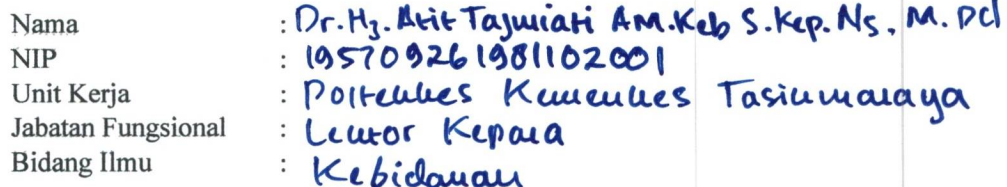 Nama : Dr. Hj. Atit Tajmiati AM.Keb S.Kep.Ns, M.Pd
NIP : 195709261981102001
Unit Kerja : Poltekkes Kemenkes Tasikmalaya
Jabatan Fungsional : Lektor Kepala
Bidang Ilmu : Kebidanan